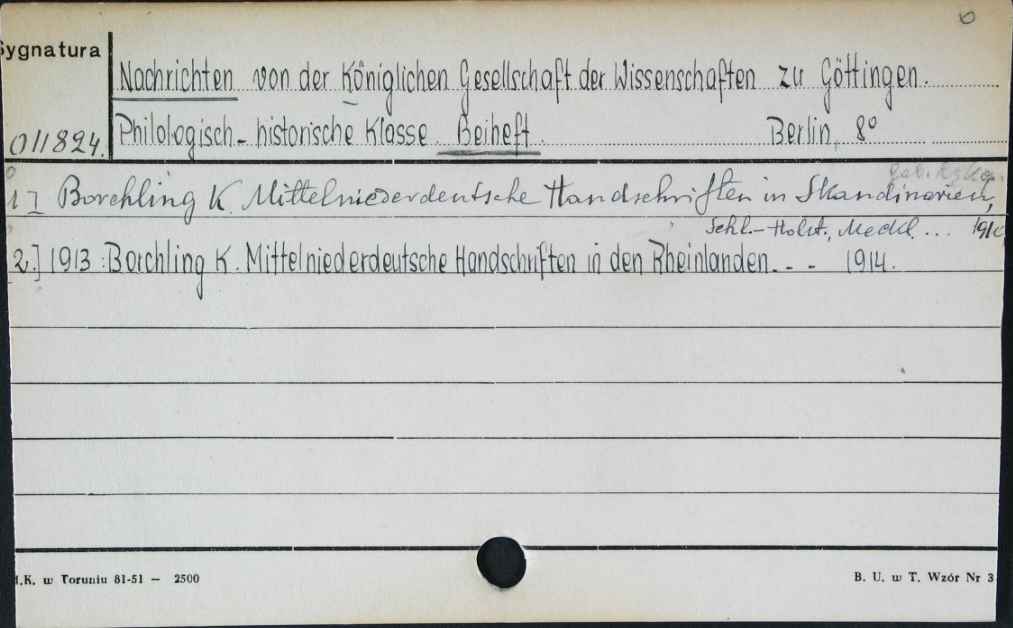 Sygnatura
Nachrichten von der Königlichen Gesellschaft der Wissenschaften zu Göttingen.
011824. Philologisch-historische Klasse. Beiheft. Berlin, 8°
1] Borchling K. Mittelniederdeutsche Handschriften in Skandinavien,
Schl.-Holst., Meckl. ...
2.] 1913: Borchling K. Mittelniederdeutsche Handschriften in den Rheinlanden. - - 1914.
.K. w Toruniu 81-51 — 2500
B. U. w T. Wzór Nr 3